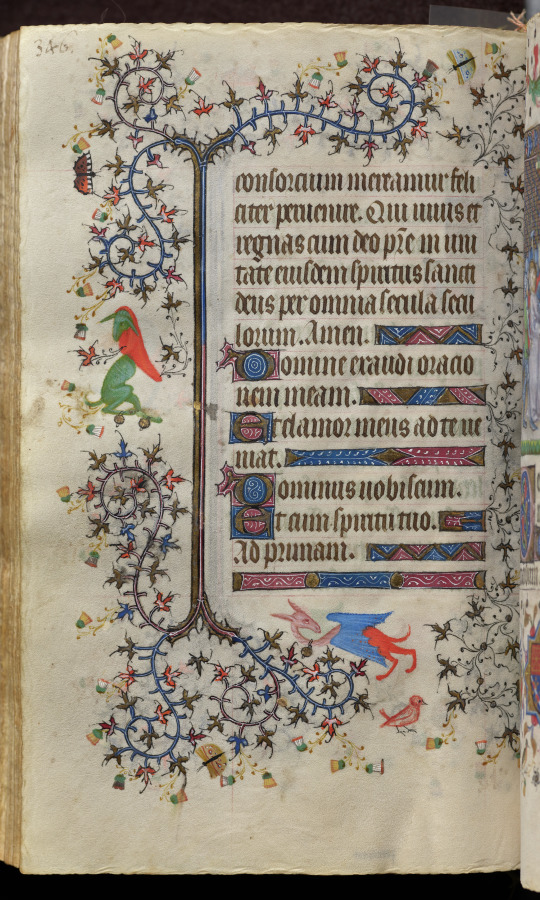 346.
consorcium mereamur feli
citer peruenire. Qui uiuis et
regnas cum deo pr̄e in uni
tate eiusdem spiritus sancti
deus per omnia secula secu
lorum. Amen.
Domine exaudi oracio
nem meam.
Et clamor meus ad te ue
niat.
Dominus uobiscum.
Et cum spiritu tuo.
Ad primam.